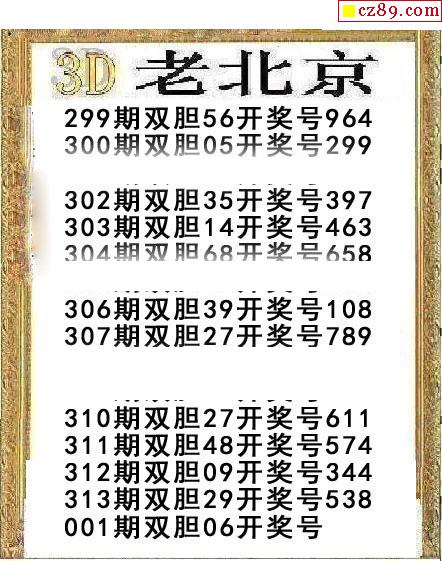 cz89.com
3D 老北京
299期双胆56开奖号964
300期双胆05开奖号299
302期双胆35开奖号397
303期双胆14开奖号463
304期双胆68开奖号658
306期双胆39开奖号108
307期双胆27开奖号789
310期双胆27开奖号611
311期双胆48开奖号574
312期双胆09开奖号344
313期双胆29开奖号538
001期双胆06开奖号